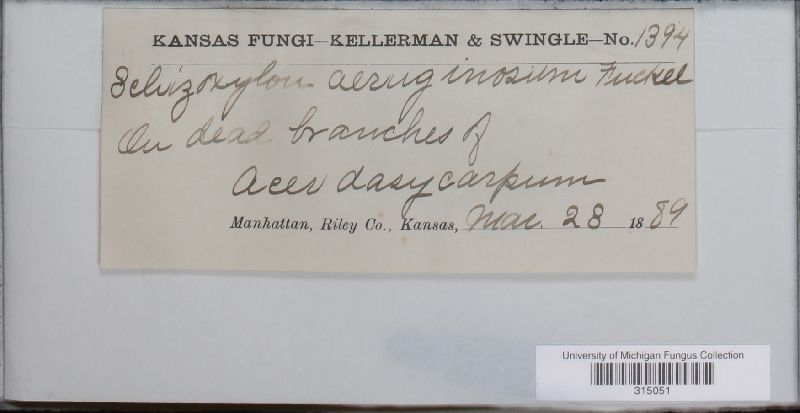 KANSAS FUNGI—KELLERMAN & SWINGLE—No. 1394
Schizoxylon aeruginosum Fuckel
On dead branches of
Acer dasycarpum
Manhattan, Riley Co., Kansas, Mar. 28 1889
University of Michigan Fungus Collection
315051